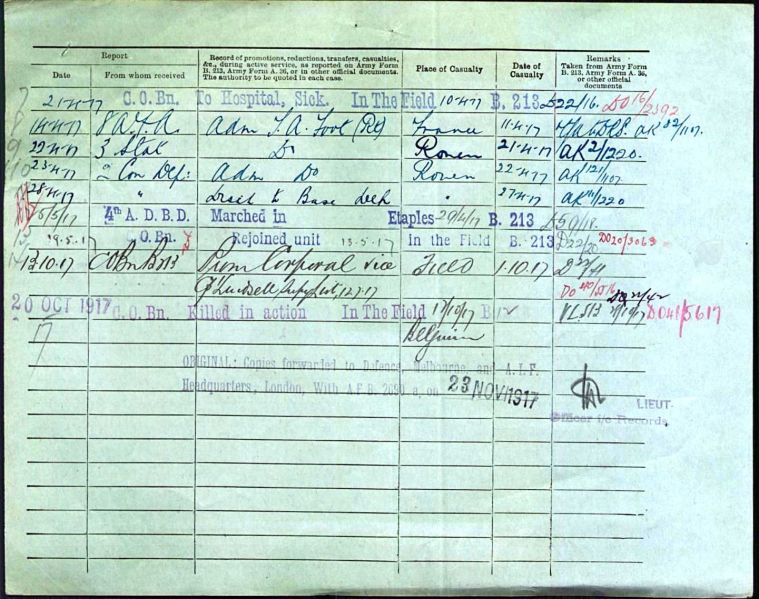 Report
Record of promotions, reductions, transfers, casualties, &c., during active service, as reported on Army Form B. 213, Army Form A. 36, or in other official documents. The authority to be quoted in each case.
Place of Casualty
Date of Casualty
Remarks
Taken from Army Form B. 213, Army Form A. 36, or other official documents
Date
From whom received
21-4-17 C.O.Bn. To Hospital, Sick. In The Field 10-4-17 B. 213 D22/16. DO16/2392
14-4-17 8 A.F.A. Adm France 11-4-17 AK 82/1107.
29-4-17 3 Stat Do Rouen 21-4-17 AK2/1220.
23-4-17 2 Con Dep: Adm Do Rouen 22-4-17 AK 121/1107
28-4-17 " to Base Dep " 27-4-17 AK 11/1220
5/5/17 4th A.D.B.D. Marched in Etaples 29/4/17 B. 213
19.5.17 C.O.Bn. Rejoined unit 13-5-17 In the Field B. 213 D22/20 DO20/3063
13.10.17 CO Bn B213 Prom Corporal vice Field 1.10.17 D22/41
12.7.17
20 OCT 1917 C.O. Bn. Killed in action In The Field 17/10/17 B DO41/5617
Belgium
ORIGINAL: Copies forwarded to Defence, Melbourne, and A.I.F.
Headquarters, London, With A.F.B. 2090 a, on 23 NOV 1917
LIEUT.
Officer i/c Records.